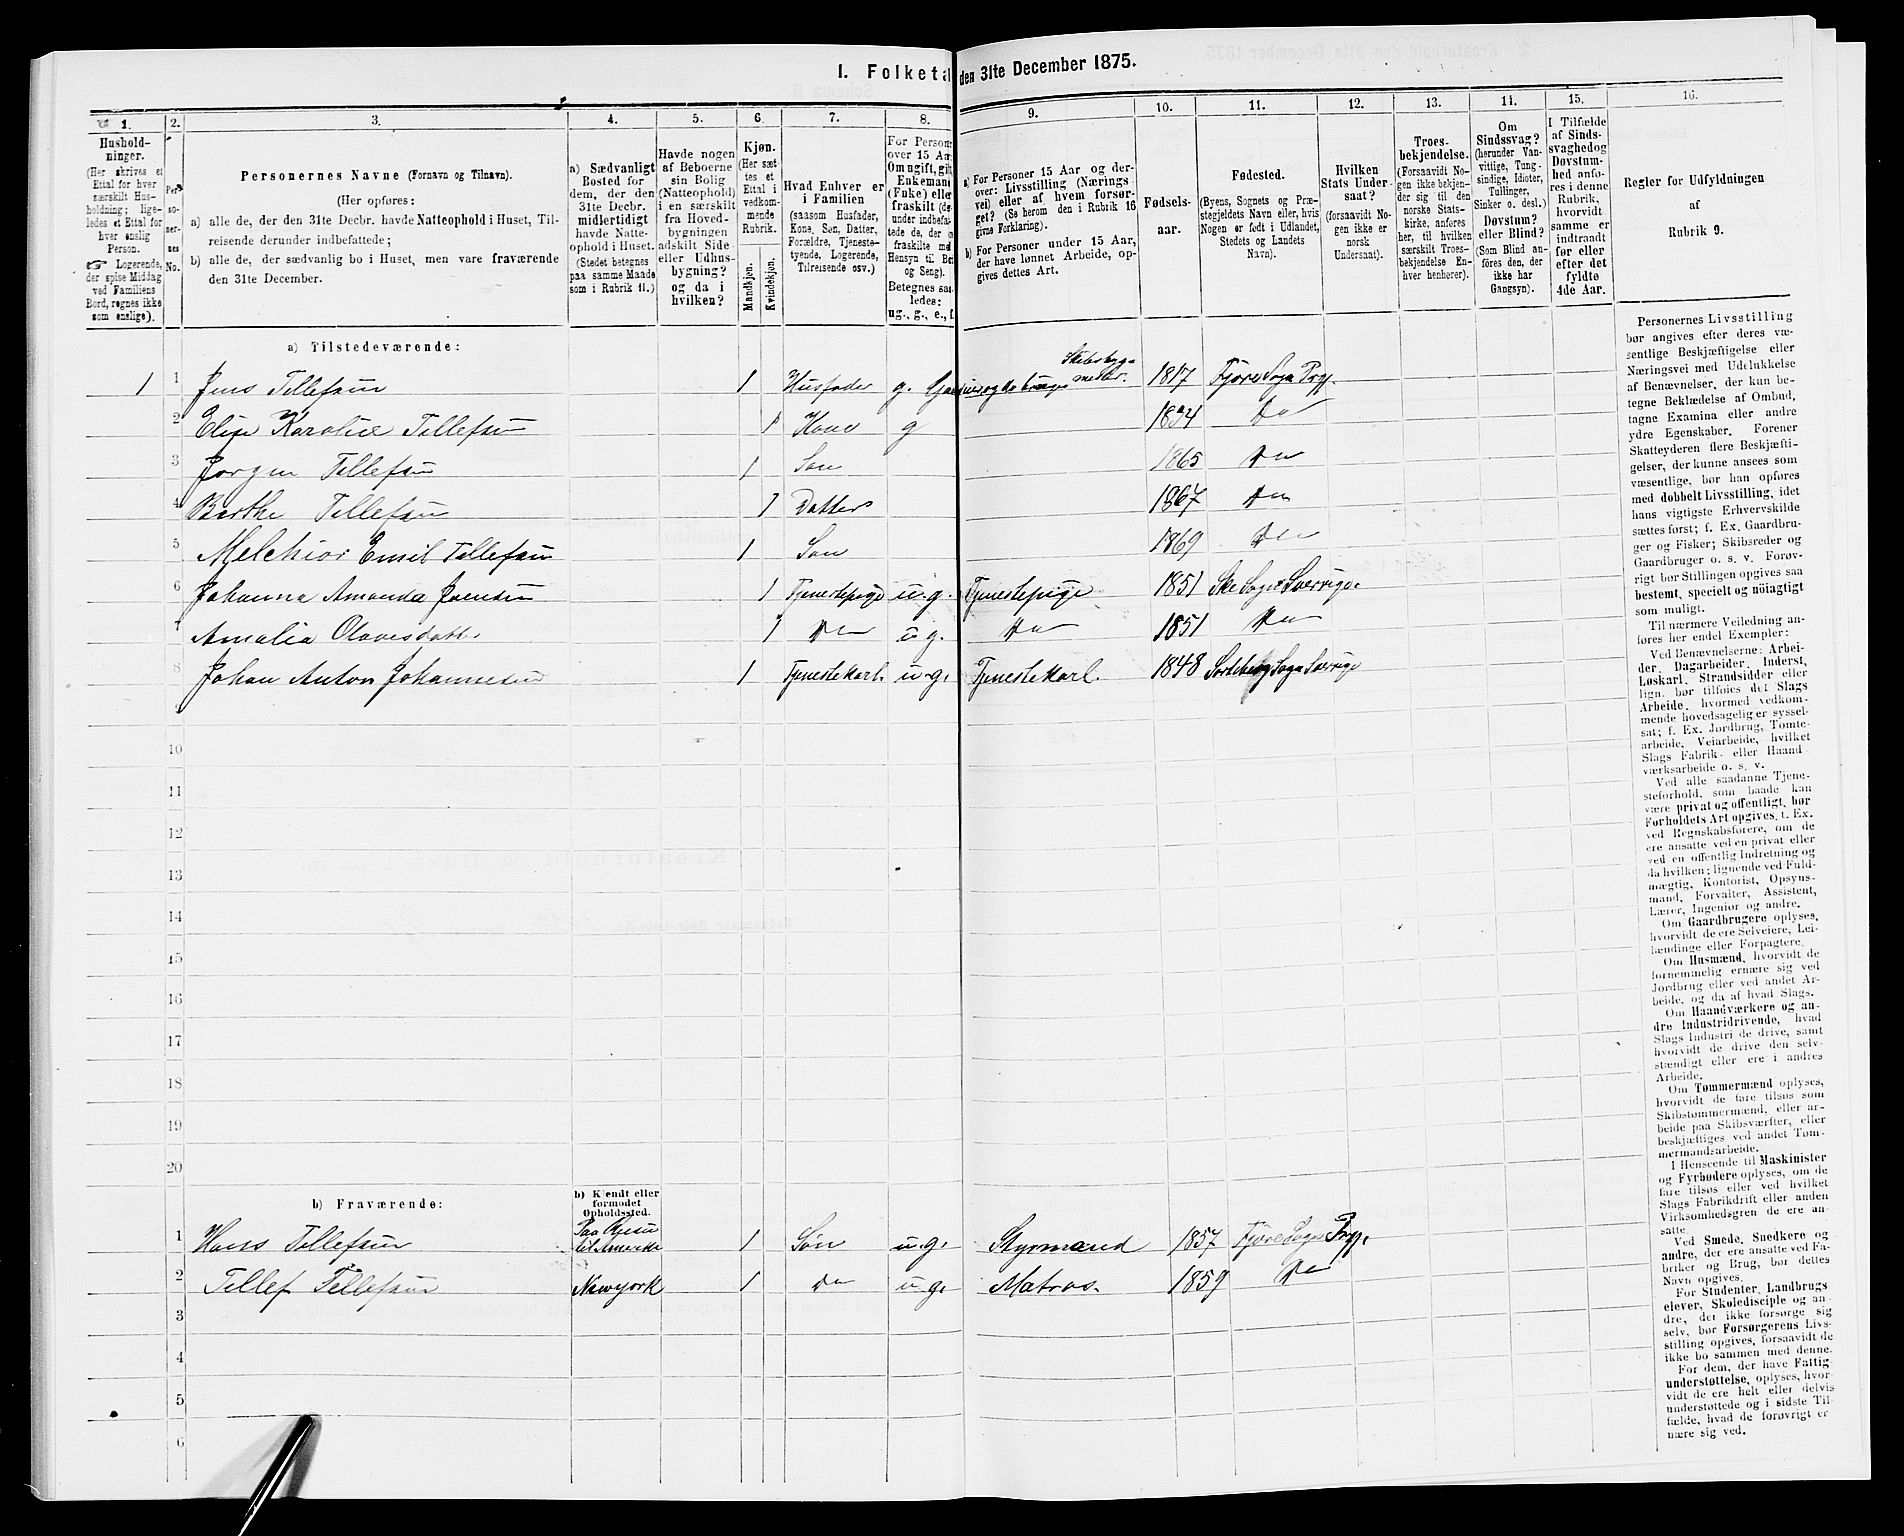 I. Folketal den 31te December 1875.
1. 2. 3. 4. 5. 6. 7. 8. 9. 10. 11. 12. 13. 14. 15. 16.
Hushold-
ninger.
(Her skrives et
Ettal for hver
særskilt Hus-
holdning; lige-
ledes et Ettal for
hver enslig
Person.
☞ Logerende,
der spise Middag
ved Familiens
Bord, regnes ikke
som enslige).
Per-
so-
ner-
nes
No.
Personernes Navne (Fornavn og Tilnavn).
(Her opføres:
a) alle de, der den 31te Decbr. havde Natteophold i Huset, Til-
reisende derunder indbefattede;
b) alle de, der sædvanlig bo i Huset, men vare fraværende
den 31te December.
a) Sædvanligt
Bosted for
dem, der den
31te Decbr.
midlertidigt
havde Natte-
ophold i Huset.
(Stedet betegnes
paa samme Maade
som i Rubrik 11.)
Havde nogen
af Beboerne
sin Bolig
(Natteophold)
i en særskilt
fra Hoved-
bygningen
adskilt Side-
eller Udhus-
bygning?
og da i
hvilken?
Kjøn.
(Her sæt-
tes et
Ettal i
vedkom-
mende
Rubrik.
Mandkjøn.
Kvindekjøn.
Hvad Enhver er
i Familien
(saasom Husfader,
Kone, Søn, Datter,
Forældre, Tjeneste-
tyende, Logerende,
Tilreisende osv.)
For Person
over 15 Aa
Om ugift, gif
Enkeman
(Enke) elle
fraskilt (de
under indbefat-
tede de, der
fraskilte med
Hensyn til Bo
og Seng).
Betegnes saa
ledes:
ug., g., e., f.
a) For Personer 15 Aar og der-
over: Livsstilling (Nærings-
vei) eller af hvem forsør-
get? (Se herom den i Rubrik 16
givne Forklaring).
b) For Personer under 15 Aar,
der have lønnet Arbeide, op-
gives dettes Art.
Fødsels-
aar.
Fødested.
(Byens, Sognets og Præ-
stegjeldets Navn eller, hvis
Nogen er født i Udlandet,
Stedets og Landets
Navn).
Hvilken
Stats Under-
saat?
(forsaavidt No-
gen ikke er
norsk
Undersaat).
Troes-
bekjendelse.
(Forsaavidt No-
gen ikke bekjen-
der sig til den
norske Stats-
kirke, anføres
her, til hvilken
særskilt Troes-
bekjendelse En-
hver henhører).
Om
Sindssvag?
(herunder Van-
vittige, Tung-
sindige, Idioter,
Tullinger,
Sinker o. desl.)
Døvstum?
eller Blind?
(Som Blind an-
føres den, der
ikke har
Gangsyn).
I Tilfælde
af Sinds-
svaghed og
Døvstum-
hed anfø-
res i denne
Rubrik,
hvorvidt
samme er
indtraadt
før eller
efter det
fyldte
4de Aar.
Regler for Udfyldningen
af
Rubrik 9.
a) Tilstedeværende:
Skibsbyg-
1 1 Jens Tellefsen 1 Husfader g. mester. 1817 Fjære Sogn Prgj.
2 Elise Karoline Tellefsen 1 Kone g 1834 Do
3 Jørgen Tellefsen 1 Søn 1865 Do
4 Berthe Tellefsen 1 Datter 1867 Do
5 Melchior Emil Tellefsen 1 Søn 1869 Do
6 Johanna Amanda Jensen 1 Tjenestepige u.g. Tjenestepige 1851 Ske Sogn Sverrige
7 Amalia Olavesdatter 1 Do u g. Do 1851 Do
8 Johan Anton Johannesen 1 Tjenestekarl. u.g. Tjenestekarl. 1848 Sogn Sverrige
9
10
11
12
13
14
15
16
17
18
19
20
b) Fraværende:
b) Kjendt eller
formodet
Opholdssted.
1 Hans Tellefsen Paa Reisen til Amerika 1 Søn u.g. Styrmand 1857 Fjære Sogn Prgj.
2 Tellef Tellefsen Newyork 1 Do u g. Matros. 1859 Do
3
4
5
6
Personernes Livsstilling
bør angives efter deres væ-
sentlige Beskjæftigelse eller
Næringsvei med Udelukkelse
af Benævnelser, der kun be-
tegne Beklædelse af Ombud,
tagne Examina eller andre
ydre Egenskaber. Forener
Skatteyderen flere Beskjæfti-
gelser, der kunne ansees som
væsentlige, bør han opføres
med dobbelt Livsstilling, idet
hans vigtigste Erhvervskilde
sættes først; f. Ex. Gaardbru-
ger og Fisker; Skibsreder og
Gaardbruger o. s. v. Forøv-
rigt bør Stillingen opgives saa
bestemt, specielt og nöiagtigt
som muligt.
Til nærmere Veiledning an-
føres her endel Exempler:
Ved Benævnelserne: Arbei-
der, Dagarbeider, Inderst,
Løskarl, Strandsidder eller
lign. bør tilføies det Slags
Arbeide, hvormed vedkom-
mende hovedsagelig er syssel-
sat; f. Ex. Jordbrug, Tomte-
arbeide, Veiarbeide, hvilket
Slags Fabrik- eller Haand-
værksarbeide o. s. v.
Ved alle saadanne Tjene-
steforhold, som baade kan
være privat og offentligt, bør
Forholdets Art opgives, t. Ex.
ved Regnskabsførere, om de
ere ansatte ved en privat eller
ved en offentlig Indretning og
da hvilken; lignende ved Fuld-
mægtig, Kontorist, Opsyns-
mand, Forvalter, Assistent,
Lærer, Ingeniør og andre.
Om Gaardbrugere oplyses,
hvorvidt de ere Selveiere, Lei-
lændinge eller Forpagtere.
Om Husmænd, hvorvidt de
fornemmelig ernære sig ved
Jordbrug eller ved andet Ar-
beide, og da af hvad Slags.
Om Haandværkere og an-
dre Industridrivende, hvad
Slags Industri de drive, samt
hvorvidt de drive den selv-
stændigt eller ere i andres
Arbeide.
Om Tømmermænd oplyses,
hvorvidt de fare tilsøs som
Skibstømmermænd, eller ar-
beide paa Skibsværfter, eller
beskjæftiges ved andet Tøm-
mermandsarbeide.
I Henseende til Maskinister
og Fyrbødere oplyses, om de
fare tilsøs eller ved hvilket
Slags Fabrikdrift eller anden
Virksomhedsgren de ere an-
satte.
Ved Smede, Snedkere og
andre, der ere ansatte ved Fa-
briker og Brug, bør dettes
Navn opgives.
For Studenter, Landbrugs-
elever, Skoledisciple og an-
dre, der ikke forsørge sig
selv, bør Forsørgerens Livs-
stilling opgives, forsaavidt de
ikke bo sammen med denne.
For dem, der have Fattig-
understøttelse, oplyses, hvor-
vidt de ere helt eller delvis
understøttede og i sidste Til-
fælde, hvad de forøvrigt er-
nære sig ved.